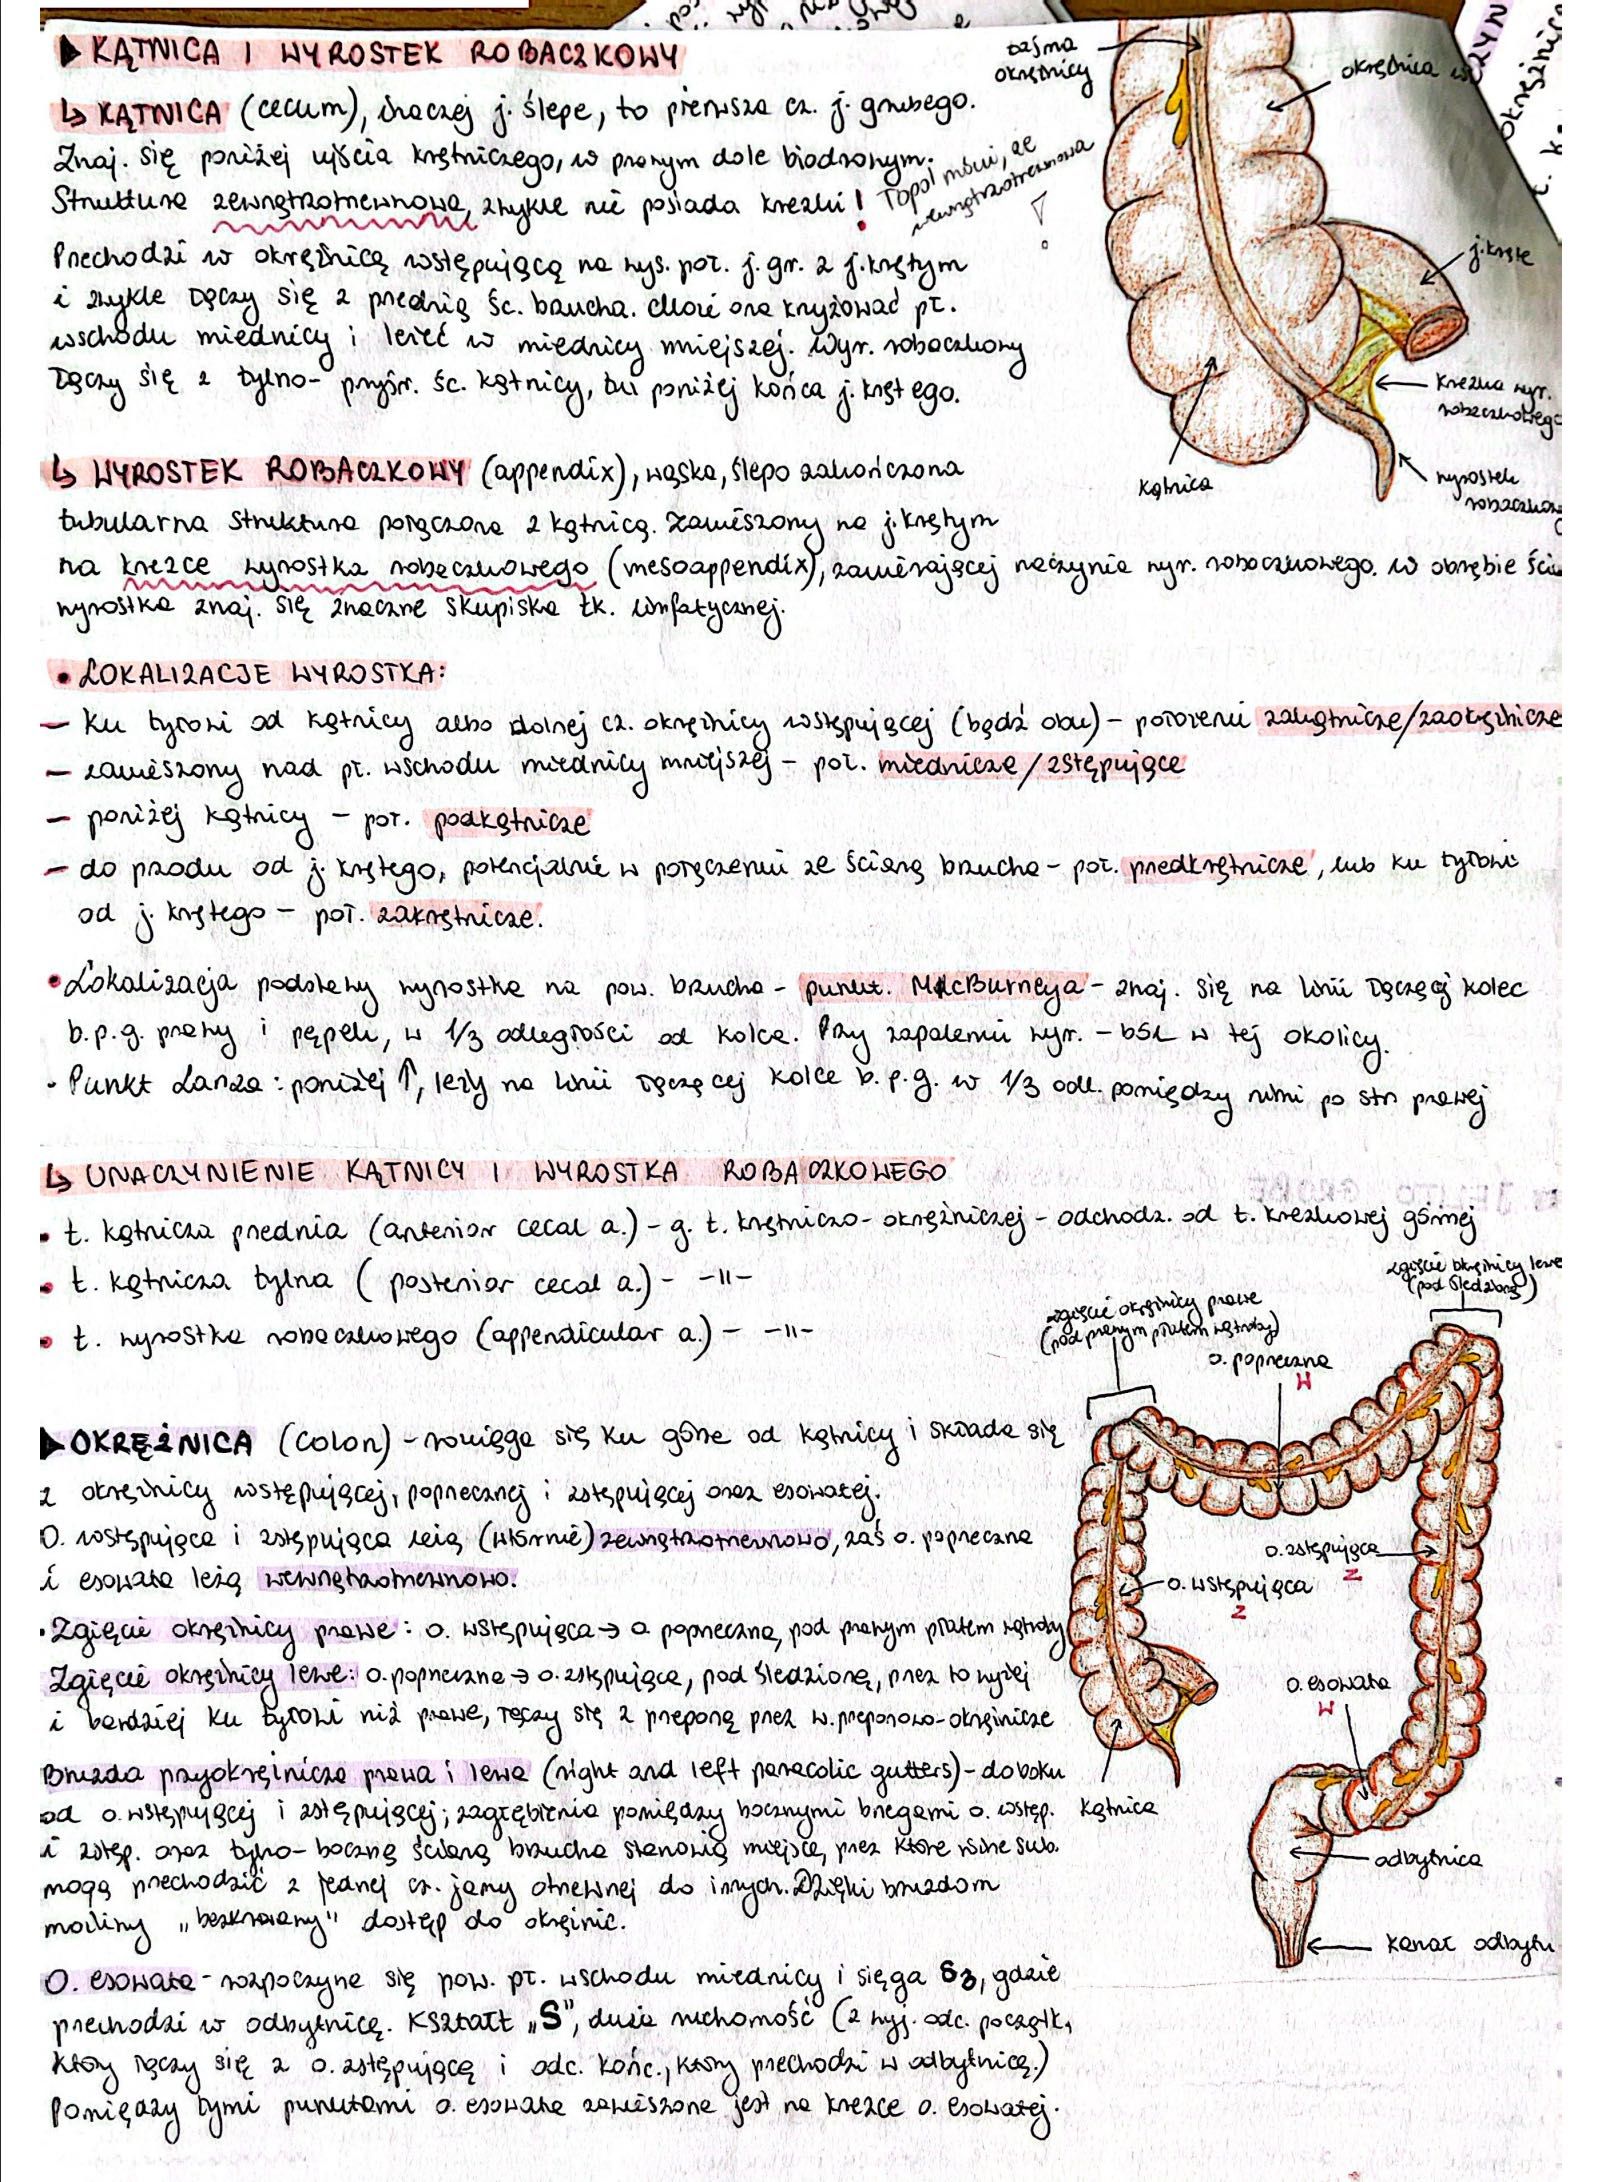 ▶ KĄTNICA I WYROSTEK ROBACZKOWY
↳ KĄTNICA (cecum), inaczej j. ślepe, to pierwsza cz. j. grubego.
Znaj. się poniżej ujścia krętniczego, w prawym dole biodrowym.
Struktura zewnątrzotrzewnowa, zwykle nie posiada krezki!
Topol mówi, że
wewnątrzotrzewnowa
!
Przechodzi w okrężnicę wstępującą na wys. poł. j. gr. z j. krętym
i zwykle łączy się z przednią śc. brzucha. Może ona krzyżować pł.
wschodu miednicy i leżeć w miednicy mniejszej. Wyr. robaczkowy
łączy się z tylno-przyśr. śc. kątnicy, tuż poniżej końca j. krętego.
taśma
okrężnicy
okrężnica
j. kręte
krezka wyr.
robaczkowego
wyrostek
kątnica
↳ WYROSTEK ROBACZKOWY (appendix), wąska, ślepo zakończona
tubularna struktura połączona z kątnicą. Zawieszony na j. krętym
na krezce wyrostka robaczkowego (mesoappendix), zawierającej naczynia wyr. robaczkowego. W obrębie
wyrostka znaj. się znaczne skupiska tk. limfatycznej.
• LOKALIZACJE WYROSTKA:
– Ku tyłowi od kątnicy albo dolnej cz. okrężnicy wstępującej (bądź obu) – położenie zakątnicze/zaokrężnicze
– zawieszony nad pł. wschodu miednicy mniejszej – poł. miednicze/zstępujące
– poniżej kątnicy – poł. podkątnicze
– do przodu od j. krętego, potencjalnie w połączeniu ze ścianą brzucha – poł. przedkrętnicze, lub ku tyłowi
od j. krętego – poł. zakrętnicze.
• Lokalizacja podstawy wyrostka na pow. brzucha – punkt. McBurneya – znaj. się na linii łączącej kolec
b.p.g. prawy i pępek, w 1/3 odległości od kolca. Przy zapaleniu wyr. – ból w tej okolicy.
• Punkt Lanza: poniżej ↑, leży na linii łączącej kolce b.p.g. w 1/3 odl. pomiędzy nimi po str prawej
↳ UNACZYNIENIE KĄTNICY I WYROSTKA ROBACZKOWEGO
• t. kątnicza przednia (anterior cecal a.) – g. t. krętniczo-okrężniczej – odchodz. od t. krezkowej górnej
• t. kątnicza tylna (posterior cecal a.) – -||-
• t. wyrostka robaczkowego (appendicular a.) – -||-
zgięcie okrężnicy lewe
(pod śledzioną)
zgięcie okrężnicy prawe
(pod prawym płatem wątroby)
o. poprzeczna
W
▶ OKRĘŻNICA (colon) – rozciąga się ku górze od kątnicy i składa się
z okrężnicy wstępującej, poprzecznej i zstępującej oraz esowatej.
O. wstępująca i zstępująca leżą (wtórnie) zewnątrzotrzewnowo, zaś o. poprzeczna
i esowata leżą wewnątrzotrzewnowo.
• Zgięcie okrężnicy prawe: o. wstępująca → o poprzeczna, pod prawym płatem wątroby
Zgięcie okrężnicy lewe: o. poprzeczna → o. zstępująca, pod śledzioną, przez to wyżej
i bardziej ku tyłowi niż prawe, łączy się z przeponą przez w. przeponowo-okrężnicze
Bruzda przyokrężnicza prawa i lewa (right and left paracolic gutters) – do boku
od o. wstępującej i zstępującej; zagłębienia pomiędzy bocznymi brzegami o. wstęp.
i zstęp. oraz tylno-boczną ścianą brzucha stanowią miejsce, przez które różne sub.
mogą przechodzić z jednej cz. jamy otrzewnej do innych. Dzięki bruzdom
możliwy „bezkrwawy" dostęp do okrężnic.
O. esowata – rozpoczyna się pow. pł. wschodu miednicy i sięga S3, gdzie
przechodzi w odbytnicę. Kształt „S", duża ruchomość (z wyj. odc. początk,
który łączy się z o. zstępującą i odc. końc., który przechodzi w odbytnicę.)
Pomiędzy tymi punktami o. esowata zawieszona jest na krezce o. esowatej.
o. zstępująca
Z
o. wstępująca
Z
o. esowata
W
kątnica
odbytnica
kanał odbytu